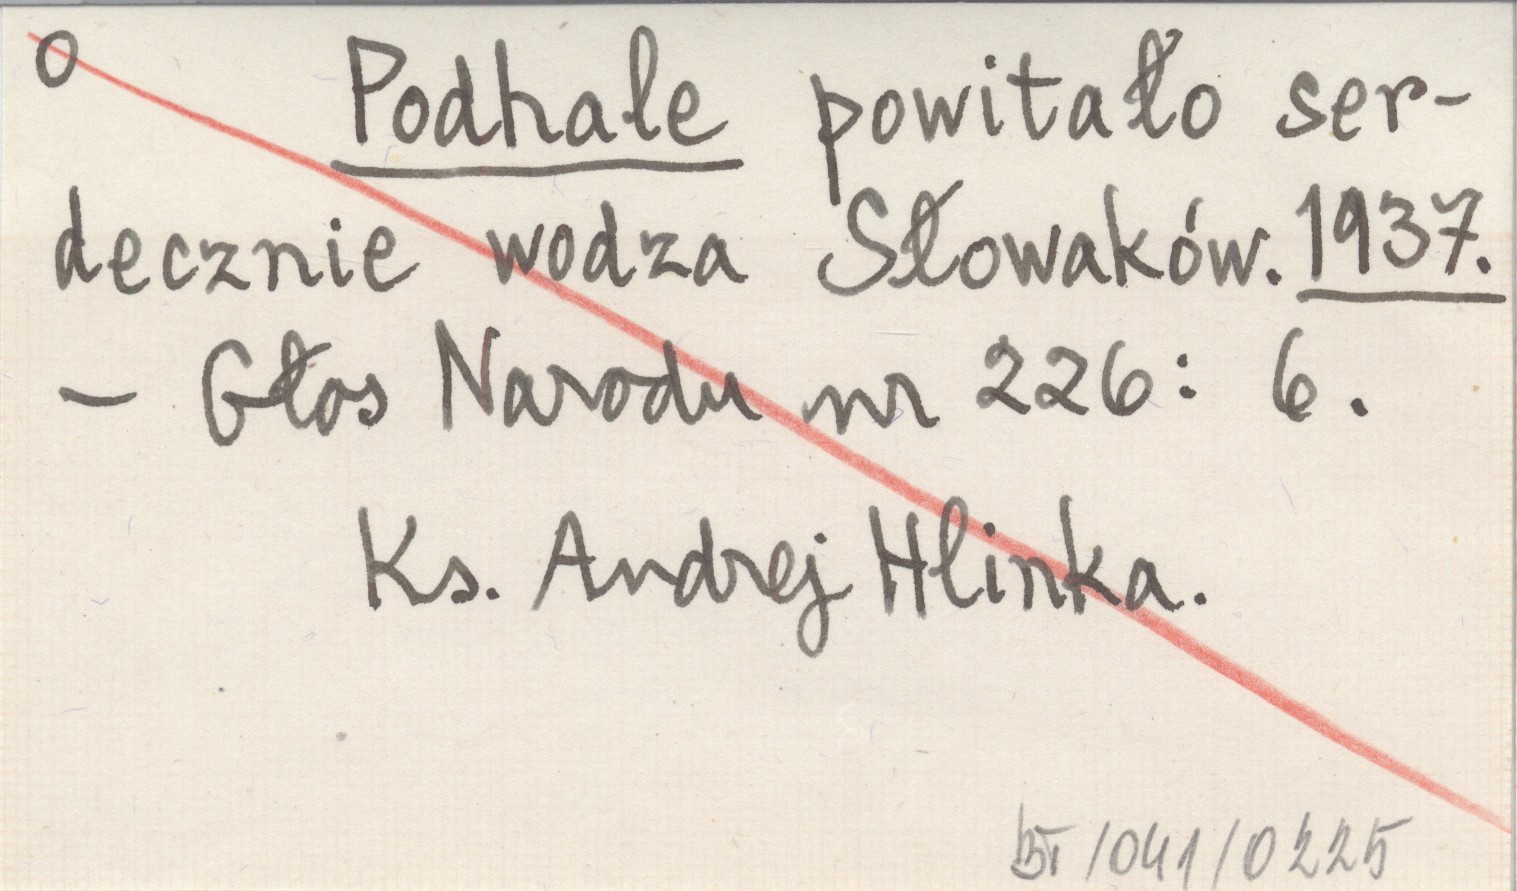 o Podhale powitało ser-
decznie wodza Słowaków. 1937.
- Głos Narodu nr 226: 6.
Ks. Andrej Hlinka.
/041/0225